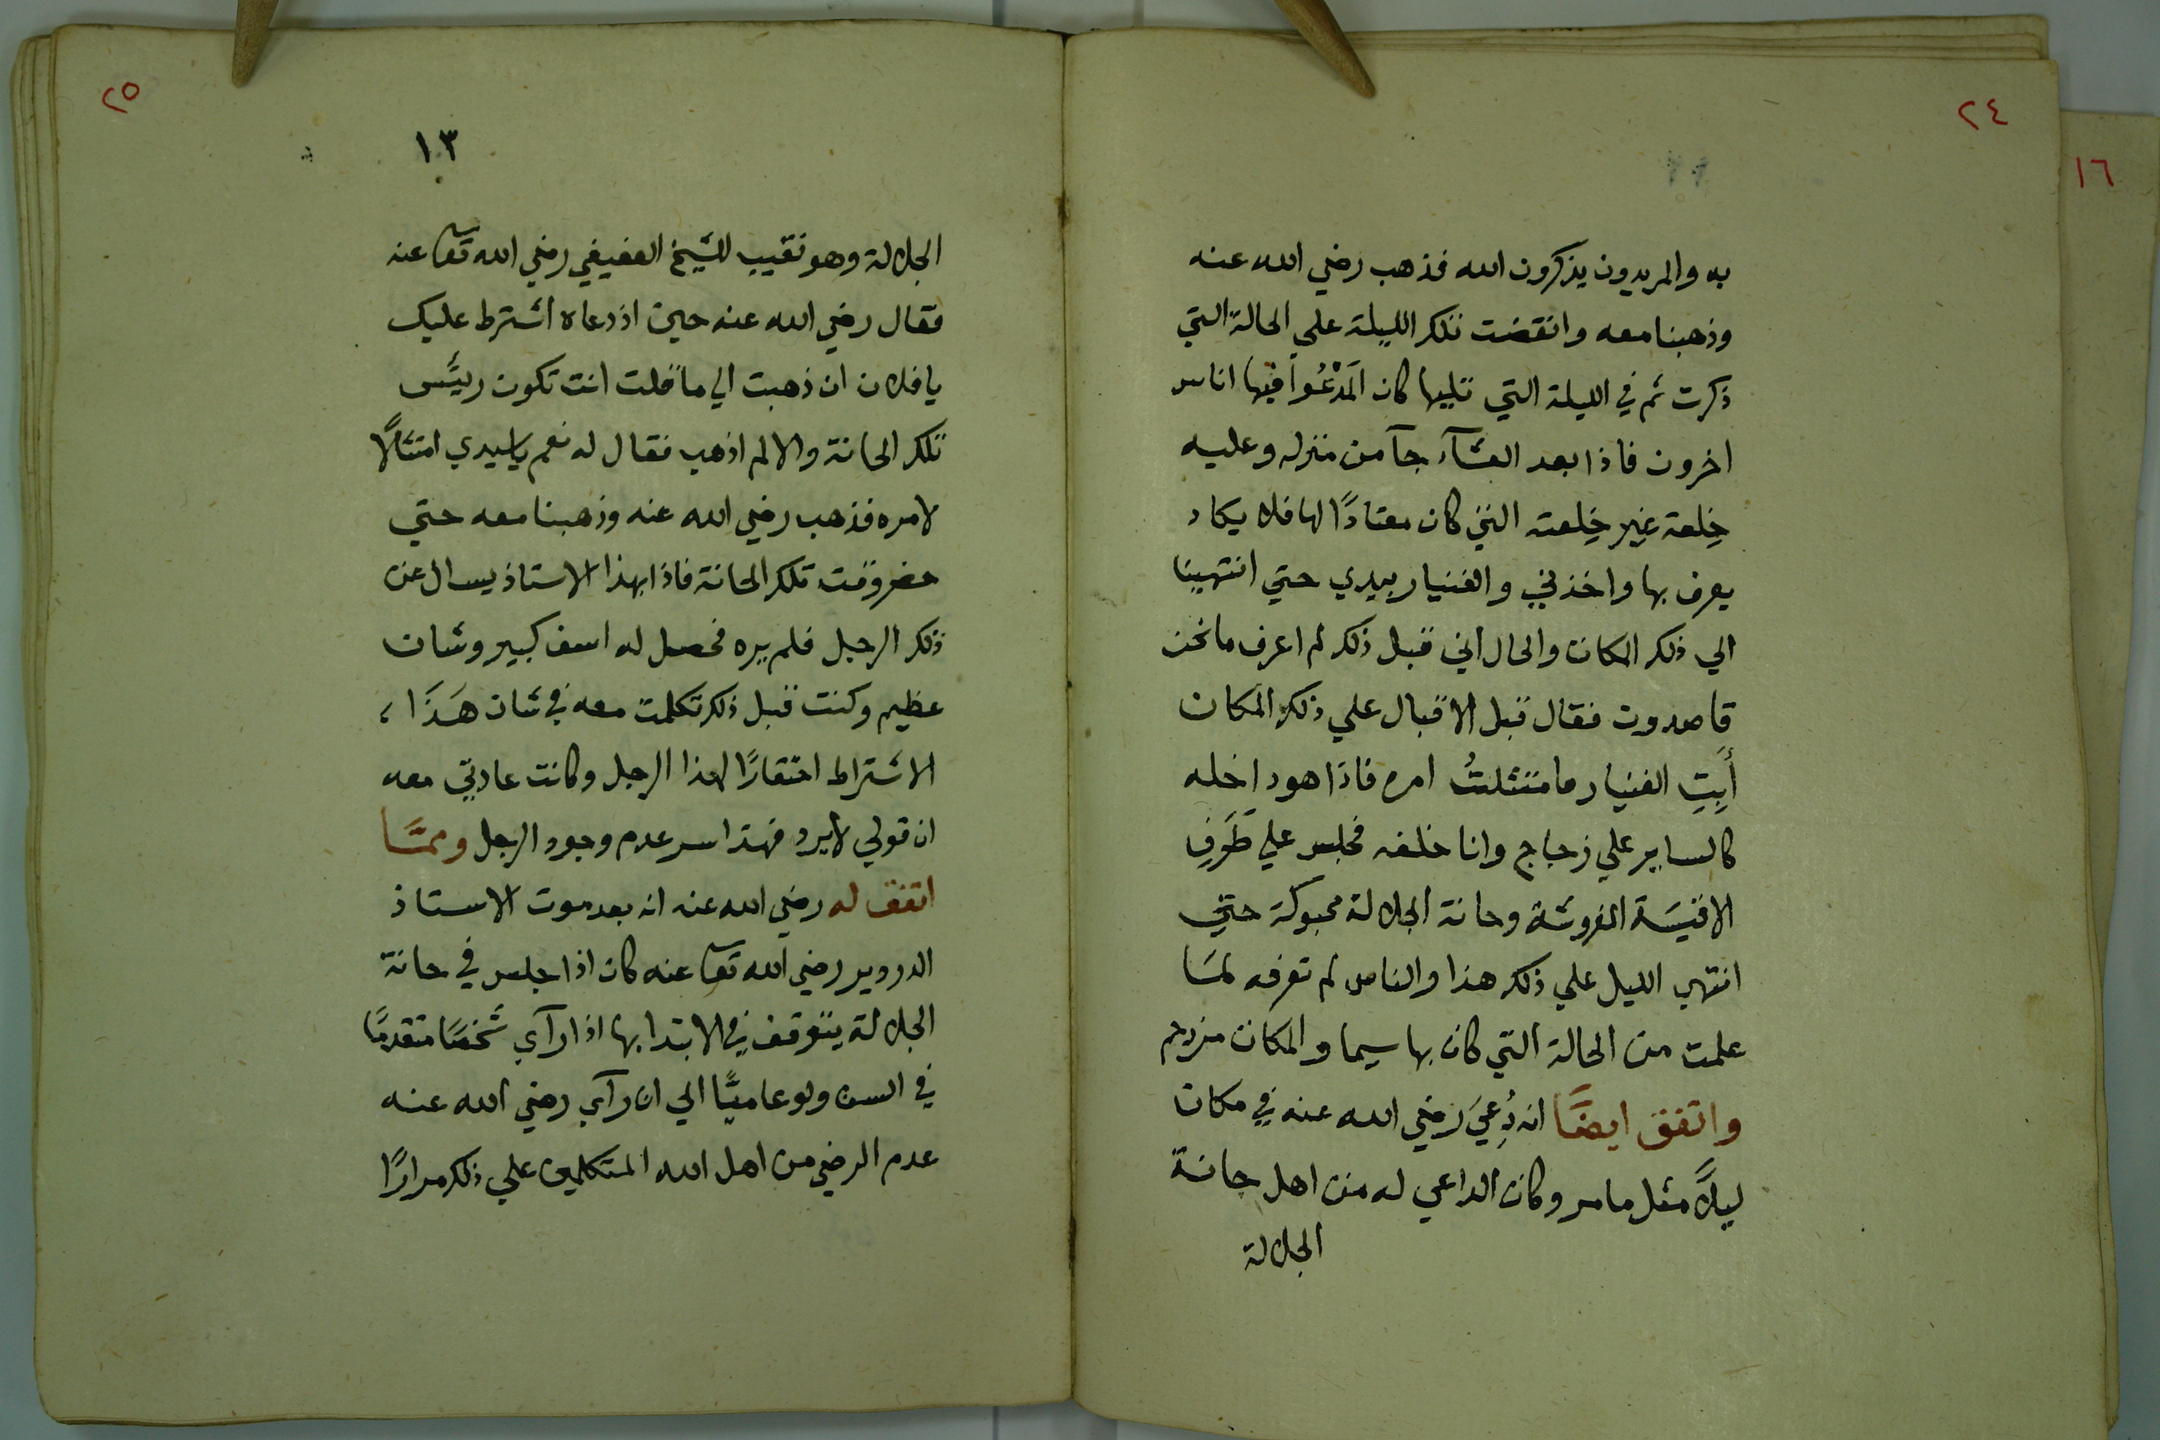 ٢٤
١٦
به والمريدون يذكرون الله فذهب رضي الله عنه
وذهبنا معه وانقضت تلك الليلة علي الحالة التي
ذكرت ثم في الليلة التي تليها كان المَدْعُوا فيها اناس
اخرون فاذا بعد العشآء جآ من منزله وعليه
خِلعة غير خِلعته التي كان معتادًا لها فلا يكاد
يعرف بها واخذني والفنيار بيدي حتي انتهينا
الي ذلك المكان والحال اني قبل ذلك لم اعرف ما نحن
قاصدون فقال قبل الاقبال علي ذلك المكان
أَبِتِ الفنيار فامتثلتُ امره فاذا هو داخله
كالساير علي زجاج وانا خلفه فجلس علي طَرَفِ
الاقيسَة المفروشة وحانة الجلالة محبوكة حتي
انتهي الليل علي ذلك هذا والناس لم تعرفه لمَا
علمت من الحالة التي كان بها سيما والمكان مزدحم
واتفق ايضًا انه دُعِيَ رضي الله عنه في مكان
ليلًا مثل ما مر وكان الداعي له من اهل حانة
الجلالة
٢٥
١٣
الجلالة وهو نقيب للشيخ العفيفي رضي الله تعا عنه
فقال رضي الله عنه حين اذ دعاه اشترط عليك
يا فلان ان ذهبت الي ما قلت انت تكون ريئس
تلك الحانة والا لم اذهب فقال له نعم يا سيدي امتثالًا
لامره فذهب رضي الله عنه وذهبنا معه حتي
حضر وقت تلك الحانة فاذا بهذا الاستاذ يسال عن
ذلك الرجل فلم يره فحصل له اسف كبير وشان
عظيم وكنت قبل ذلك تكلمت معه في شان هَذَا
الاشتراط احتقارًا لهذا الرجل وكانت عادتي معه
ان قولي لا يرد فهذا سر عدم وجود الرجل وممَّا
اتفق له رضي الله عنه انه بعد موت الاستاذ
الدردير رضي الله تعا عنه كان اذا جلس في حانة
الجلالة يتوقف في الابتدا بها اذا رآي شخصًا متقدمًا
في السن ولو عاميًّا الي ان رآي رضي الله عنه
عدم الرضي من اهل الله المتكلمين علي ذلك مرارًا